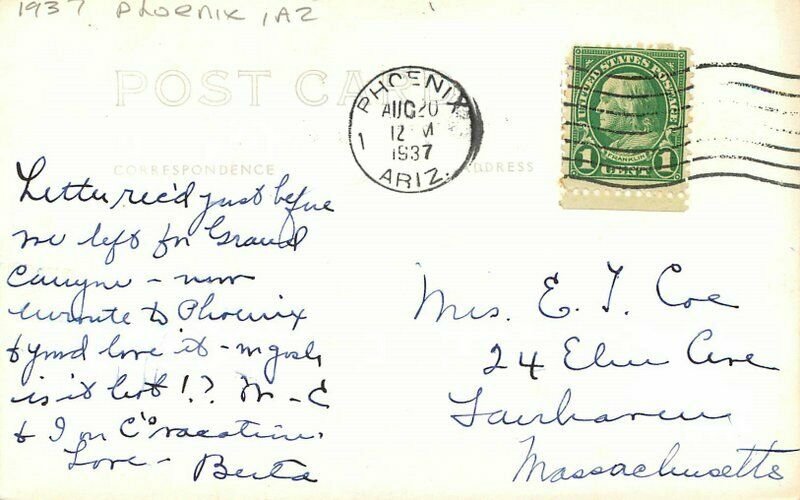 1937 PHOENIX, AZ
POST CARD
CORRESPONDENCE
ADDRESS
PHOENIX
AUG 20
12 M
1937
1
ARIZ.
UNITED STATES POSTAGE
FRANKLIN
1 CENT 1
Letter rec'd just before
we left for Grand
Canyon - now
enroute to Phoenix
& you'd love it - my gosh
is it hot!? M - C
& I on C's vacation.
Love - Berta
Mrs. E. T. Coe
24 Elm Ave
Fairhaven
Massachusetts